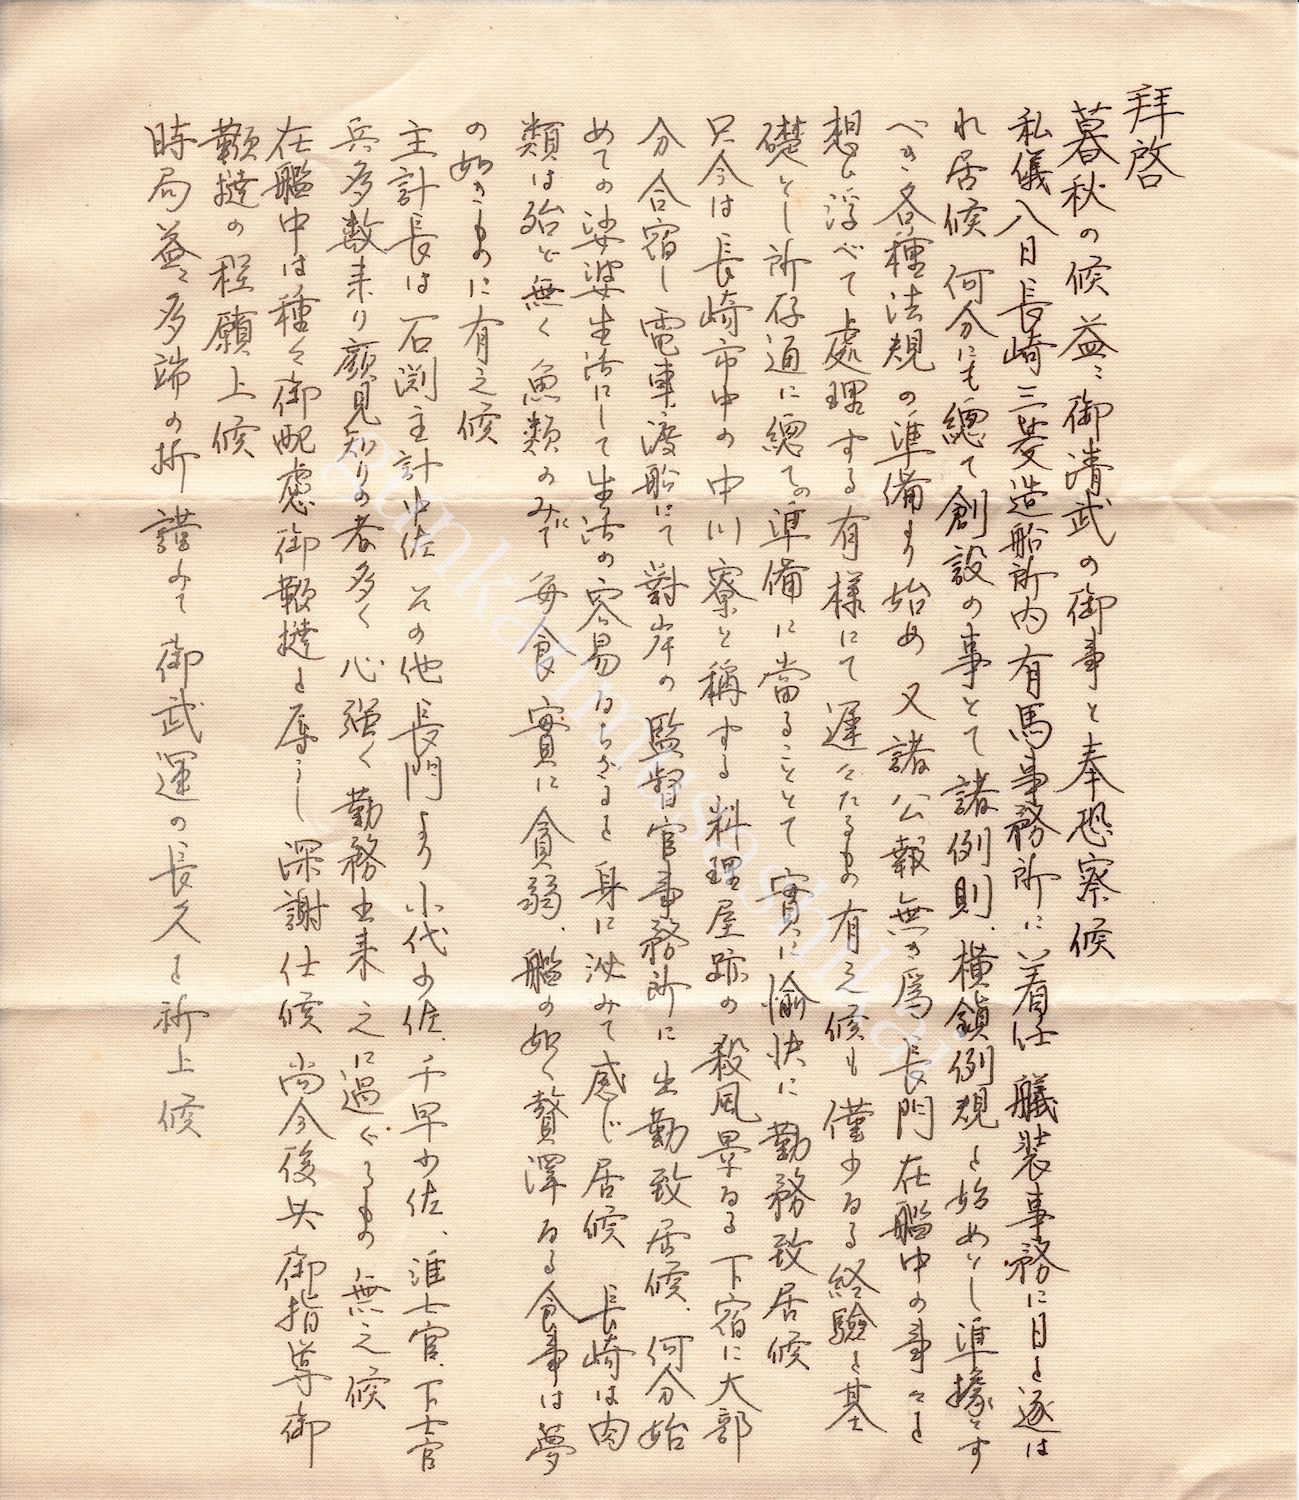 拝啓
暮秋の候益〻御清武の御事と奉恐察候
私儀八日長崎三菱造船所内有馬事務所に着任 艤装事務に日を逐は
れ居候 何分にも總て創設の事とて諸例則、横鎮例規を始めとし準據す
べき各種法規の準備より始め 又諸公報無き為 長門在艦中の事々を
想ひ浮べて處理する有様にて 遅々たるもの有之候も 僅少なる経驗を基
礎とし所存通に總ての準備に當ることとて 實に愉快に勤務致居候
只今は長崎市中の中川寮と稱する料理屋跡の殺風景なる下宿に大部
分合宿し 電車、渡船にて對岸の監督官事務所に出勤致居候、何分始
めての娑婆生活にして生活の容易ならざるを身に沁みて感じ居候 長崎は肉
類は殆ど無く魚類のみにて 毎食實に貧弱、艦の如く贅澤なる食事は夢
の如きものに有之候
主計長は石渕主計中佐 その他長門より小代少佐、千早少佐、准士官、下士官
兵多数来り 顔見知りの者多く 心強く勤務出来 之に過ぐるもの無之候
在艦中は種々御配慮御鞭撻を辱うし 深謝仕候 尚今後共御指導御
鞭撻の程願上候
時局益〻多端の折 謹みて 御武運の長久を祈上候
gunkanmusashi.or